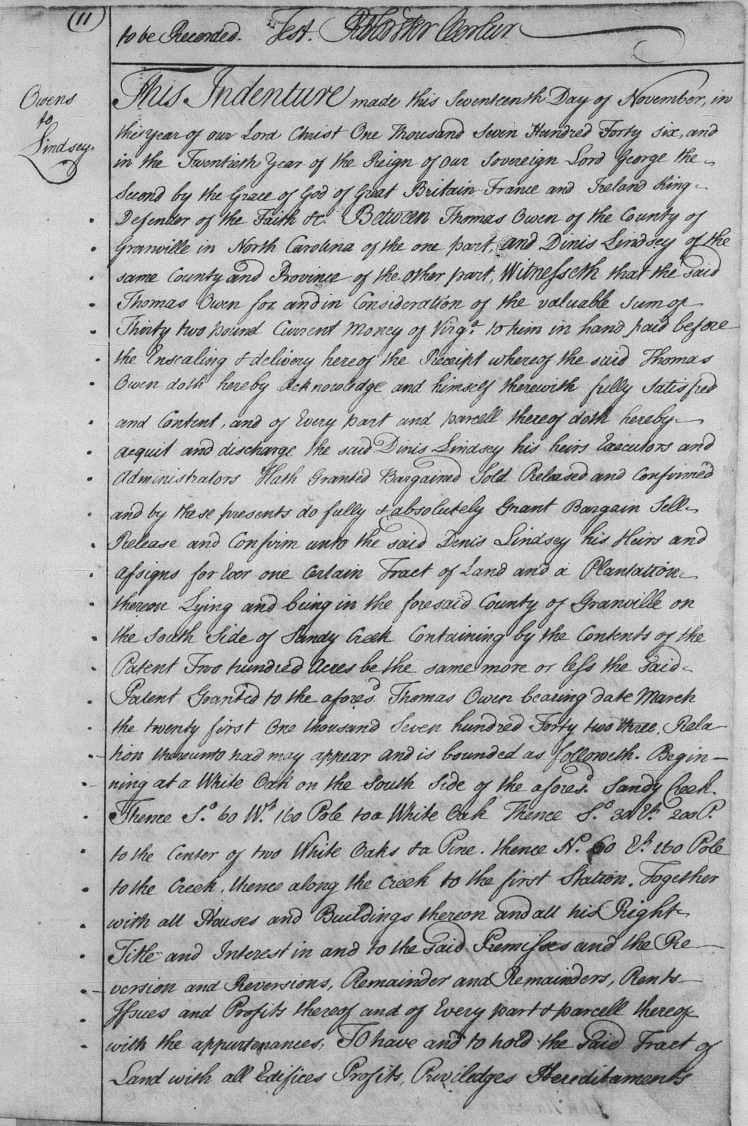 11
to be Recorded. Test.
Owens
to
Lindsey.
This Indenture made this Seventeenth Day of November, in
the year of our Lord Christ One Thousand Seven Hundred Forty six, and
in the Twentieth Year of the Reign of our Sovereign Lord George the
Second by the Grace of God of Great Britain France and Ireland King
Defender of the Faith &c. Between Thomas Owen of the County of
Granville in North Carolina of the one part, and Dinis Lindsey of the
same County and Province of the other part, Witnesseth that the Said
Thomas Owen for and in Consideration of the valuable Sum of
Thirty two pound Current Money of Virgª to him in hand paid before
the Ensealing & delivery hereof the Receipt whereof the said Thomas
Owen doth hereby acknowledge and himself therewith fully Satisfied
and Content, and of Every part and parcell thereof doth hereby
acquit and discharge the said Dinis Lindsey his heirs Executors and
Administrators Hath Granted Bargained Sold Released and Confirmed
and by these presents do fully & absolutely Grant Bargain Sell
Release and Confirm unto the said Denis Lindsey his Heirs and
Assigns for Ever one Certain Tract of Land and a Plantation
thereon Lying and being in the foresaid County of Granville on
the South Side of Sandy Creek Containing by the Contents of the
Patent Two hundred Acres be the same more or less the Said
Patent Granted to the afores.d Thomas Owen bearing date March
the twenty first One thousand Seven hundred Forty two three, Rela-
tion thereunto had may appear and is bounded as followeth. Begin-
ning at a White Oak on the South Side of the afores.d Sandy Creek.
Thence S.o 60 W.t 160 Pole to a White Oak Thence S.o 30 E.t 200 P.
to the Center of two White Oaks & a Pine. thence N.o 60 E.t 160 Pole
to the Creek, thence along the Creek to the first Station. Together
with all Houses and Buildings thereon and all his Right
Title and Interest in and to the Said Premisses and the Re-
version and Reversions, Remainder and Remainders, Rents
Issues and Profits thereof and of Every part & parcell thereof
with the appurtenances, To have and to hold the Said Tract of
Land with all Edifices Profits, Priviledges Hereditaments